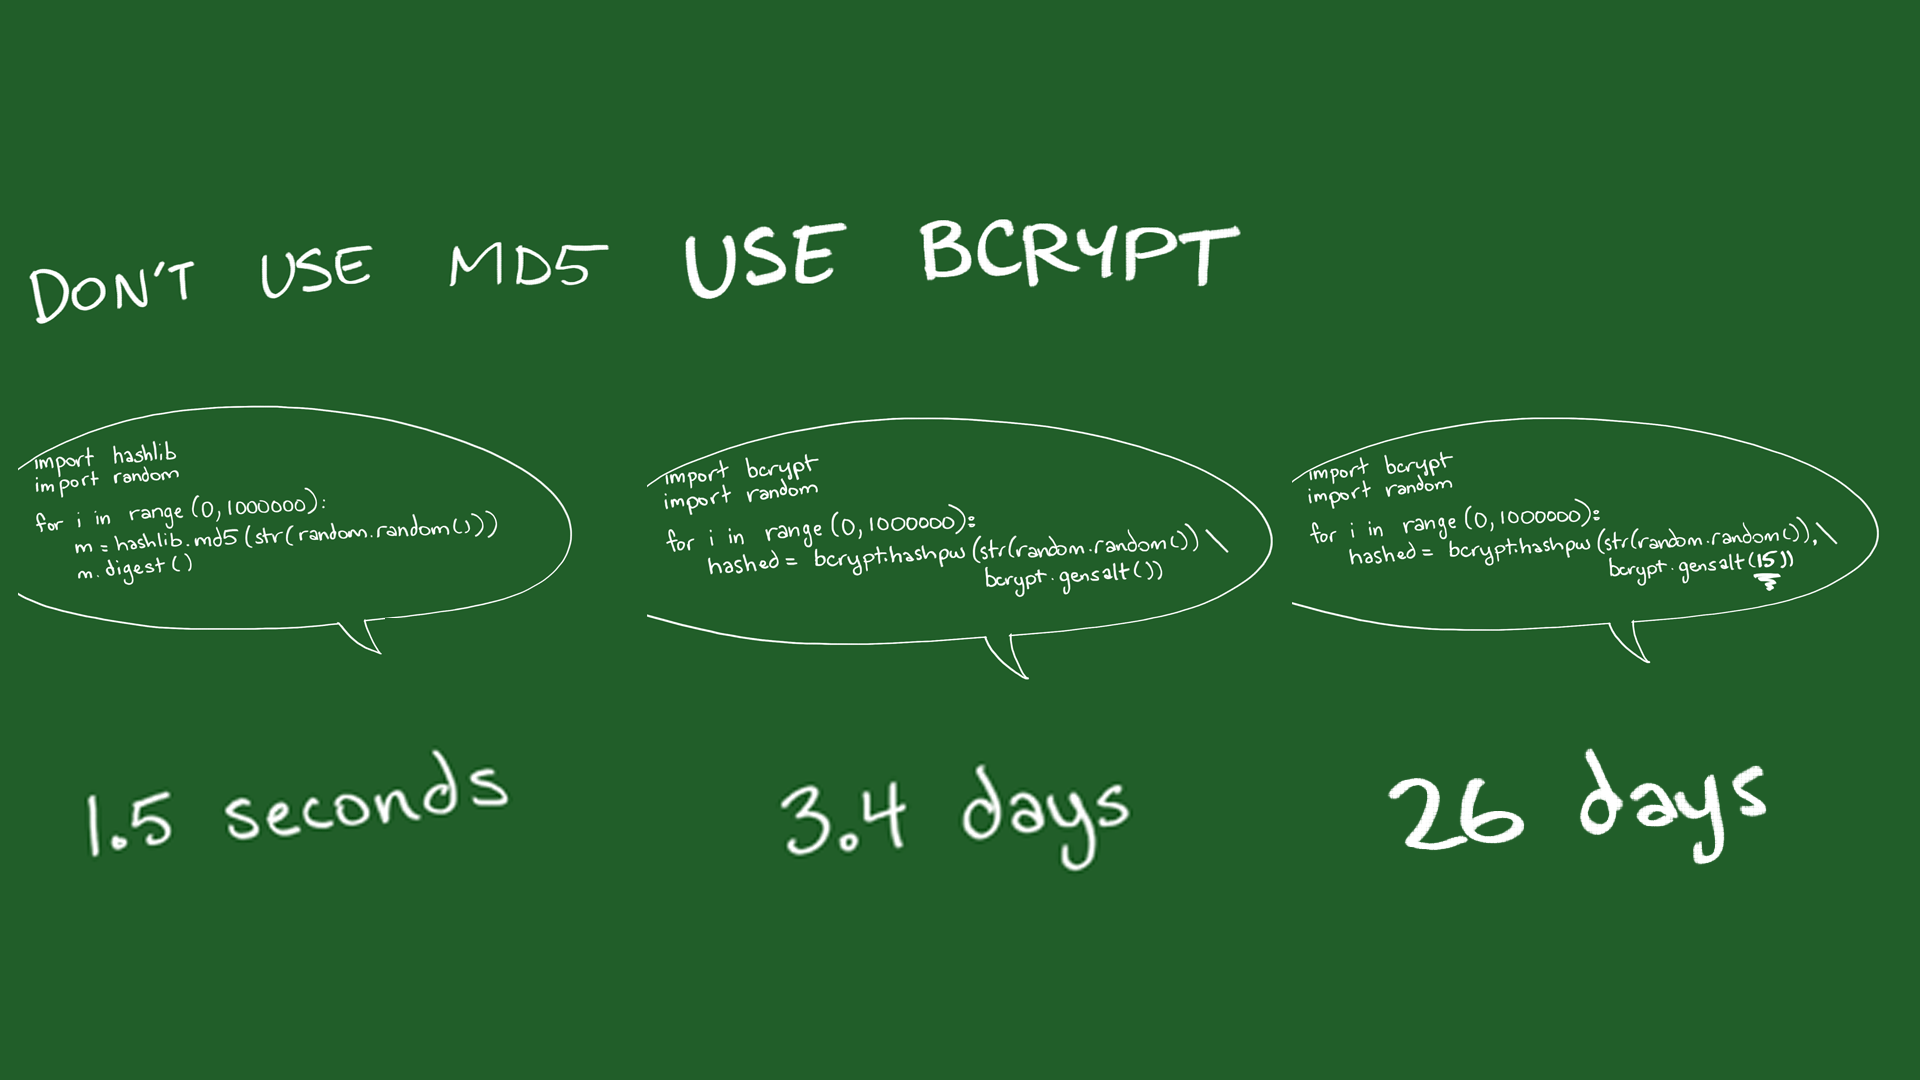 DON'T USE MD5 USE BCRYPT
import hashlib
import random
for i in range (0,1000000):
m = hashlib.md5(str(random.random()))
m.digest()
import bcrypt
import random
for i in range (0,1000000):
hashed = bcrypt.hashpw (str(random.random()) \
bcrypt.gensalt())
import bcrypt
import random
for i in range (0,1000000):
hashed = bcrypt.hashpw (str(random.random()), \
bcrypt.gensalt(15))
1.5 seconds
3.4 days
26 days